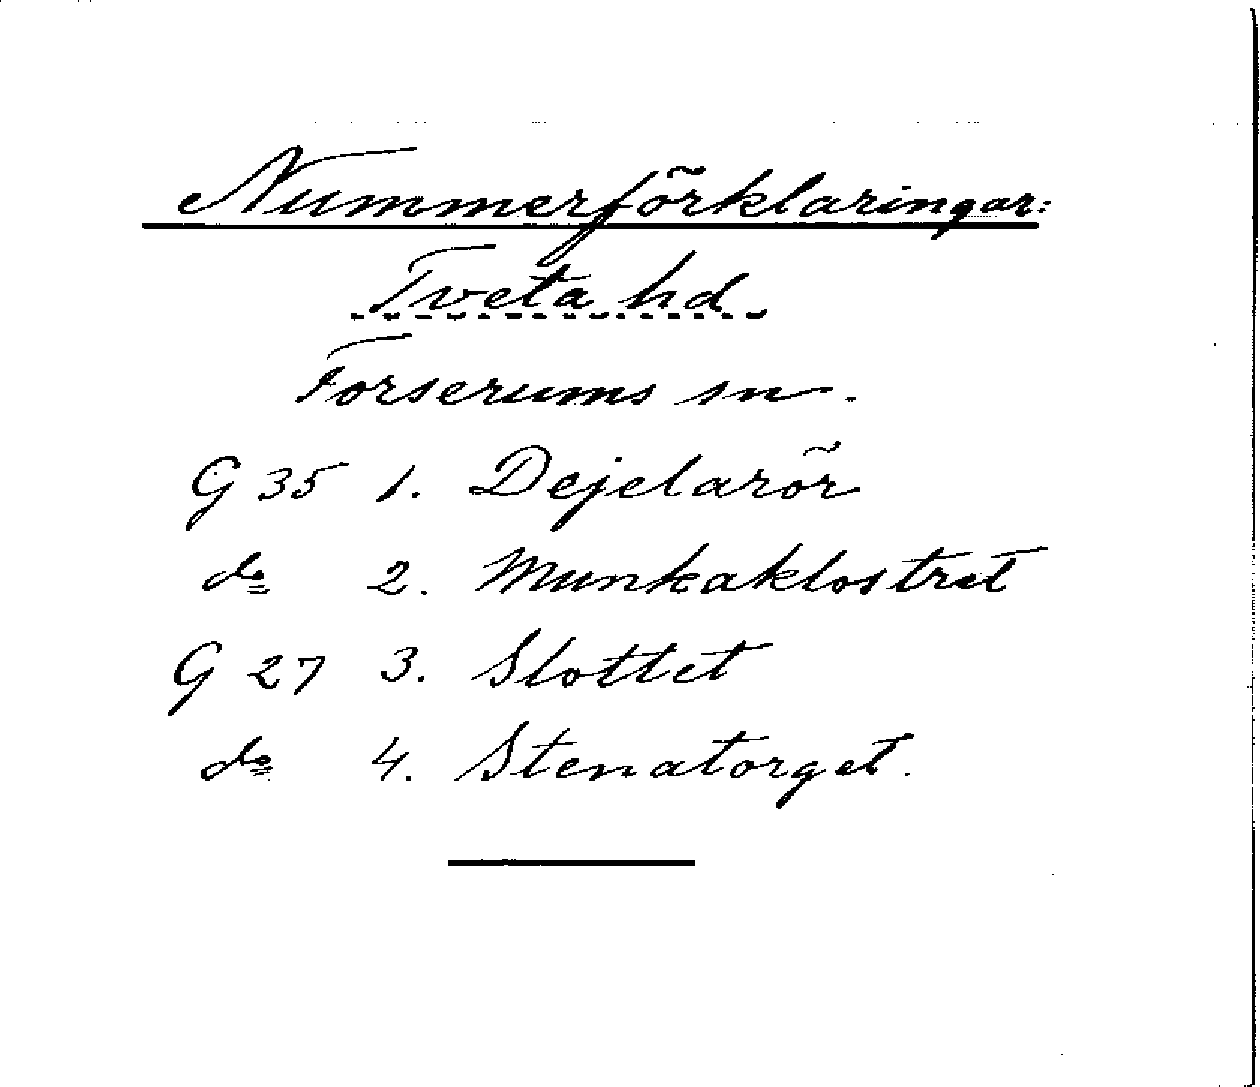 Nummerförklaringar:
Tveta hd.
Forserums sn.
G 35 1. Dejelarör
do 2. Munkaklostret
G 27 3. Slottet
do 4. Stenatorget.